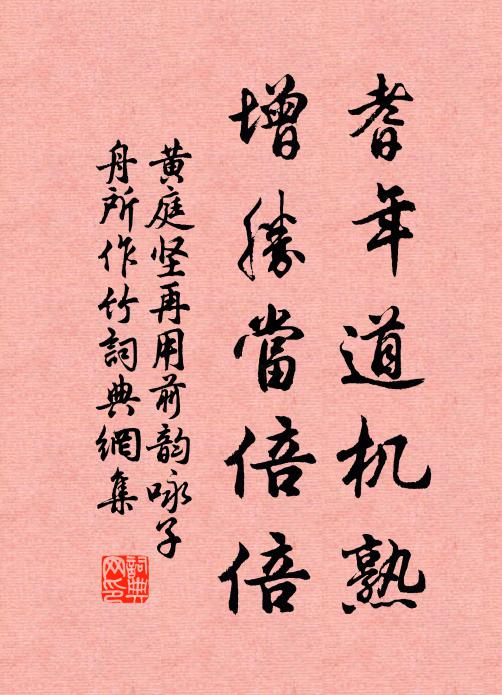 耆年道机熟
增勝當倍倍
黄庭坚再用前韵咏子
舟所作竹詞典網集
詞典网印